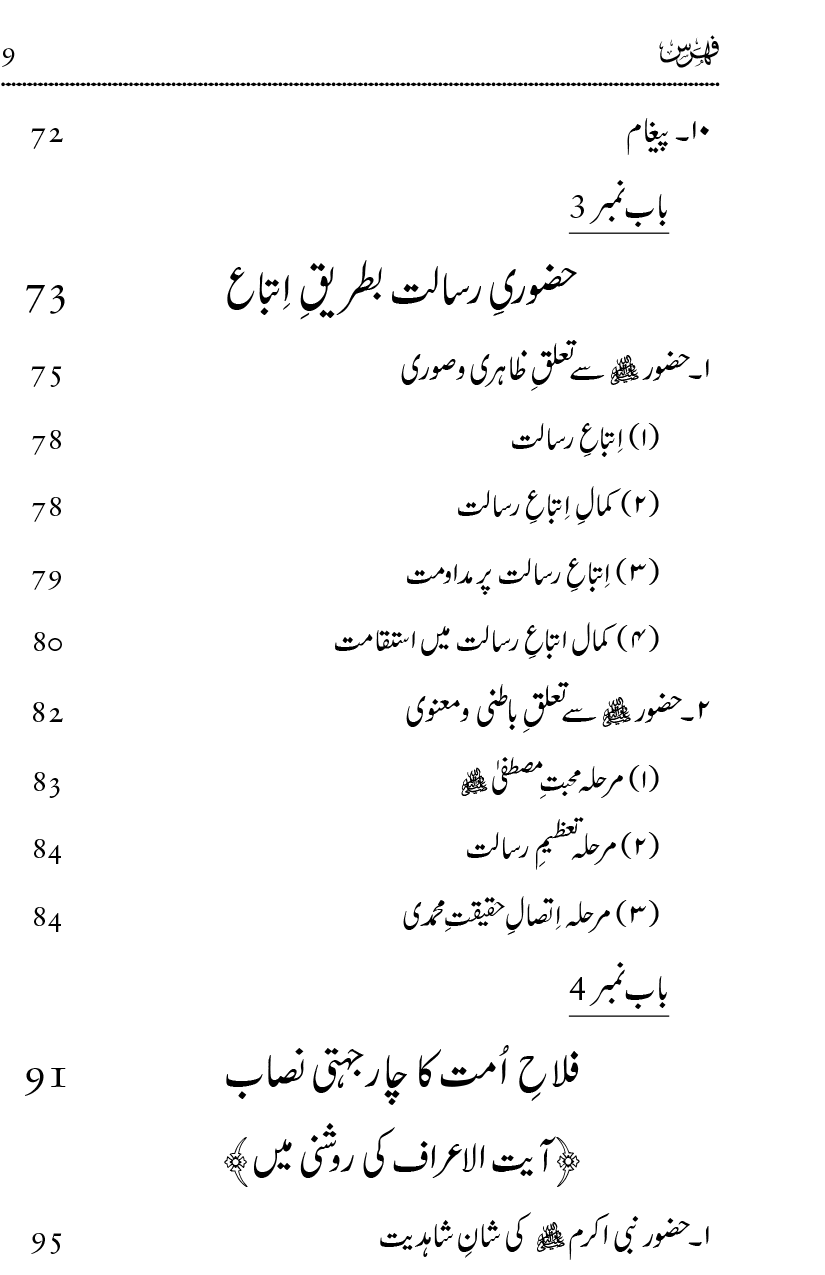 فہرس 9
۱۰۔ پیغام 72
باب نمبر 3
حضوریِ رسالت بطریقِ اِتباع 73
۱۔ حضور ﷺ سے تعلقِ ظاہری وصوری 75
(۱) اِتباعِ رسالت 78
(۲) کمالِ اِتباعِ رسالت 78
(۳) اِتباعِ رسالت پر مداومت 79
(۴) کمال اتباعِ رسالت میں استقامت 80
۲۔ حضور ﷺ سے تعلقِ باطنی ومعنوی 82
(۱) مرحلہ محبتِ مصطفیٰ ﷺ 83
(۲) مرحلہ تعظیمِ رسالت 84
(۳) مرحلہ اِتصالِ حقیقتِ محمدی 84
باب نمبر 4
فلاحِ اُمت کا چار جہتی نصاب 91
﴿آیت الاعراف کی روشنی میں﴾
۱۔ حضور نبی اکرم ﷺ کی شانِ شاہدیت 95